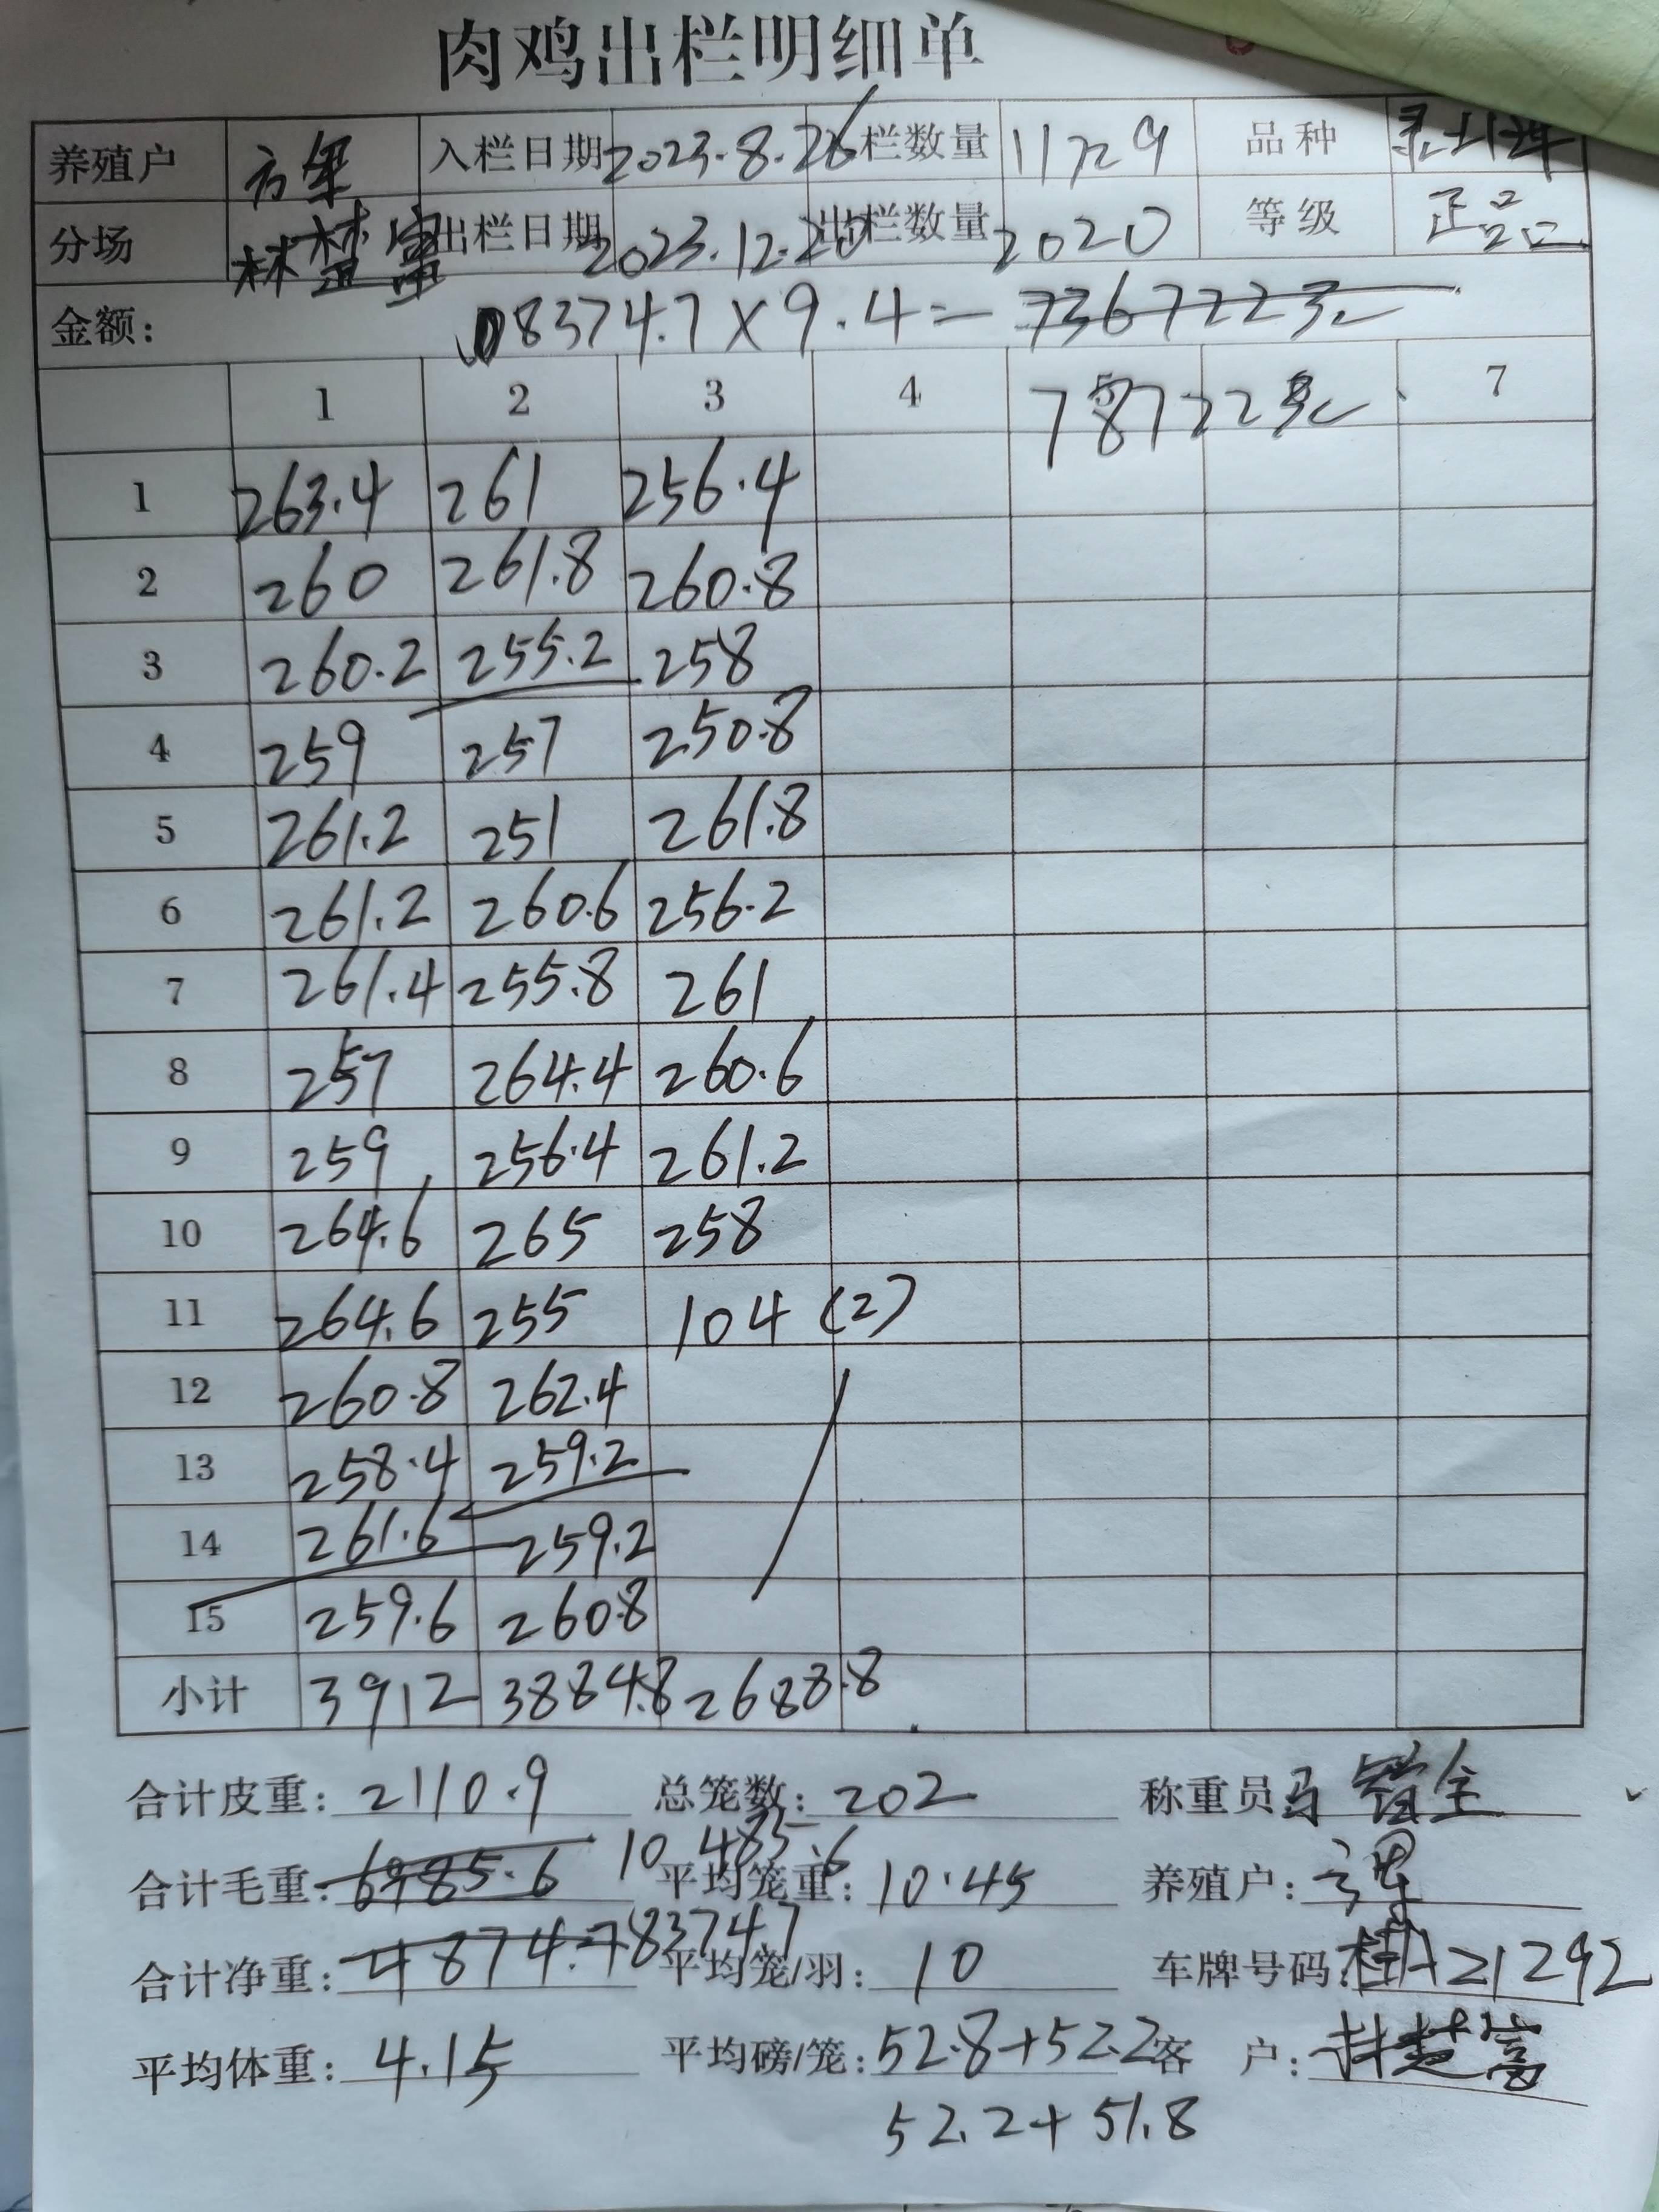 肉鸡出栏明细单
养殖户 入栏日期 2023.8.26 栏数量 11729 品种
分场 林楚富 出栏日期 2023.12.20 出栏数量 2020 等级 正品
金额: 8374.7×9.4=
1 2 3 4 5 7
78722元
1 263.4 261 256.4
2 260 261.8 260.8
3 260.2 255.2 258
4 259 257 250.8
5 261.2 251 261.8
6 261.2 260.6 256.2
7 261.4 255.8 261
8 257 264.4 260.6
9 259 256.4 261.2
10 264.6 265 258
11 264.6 255 104 (2)
12 260.8 262.4
13 258.4 259.2
14 261.6 259.2
15 259.6 260.8
小计 3912 3884.8 2688.8
合计皮重: 2110.9 总笼数: 202 称重员
合计毛重: 6985.6 10485.6 平均笼重: 10.45 养殖户:
合计净重: 4874.7 8374.7 平均笼/羽: 10 车牌号码: 桂A21292
平均体重: 4.15 平均磅/笼: 52.8+52.2 客 户: 林楚富
52.2+51.8